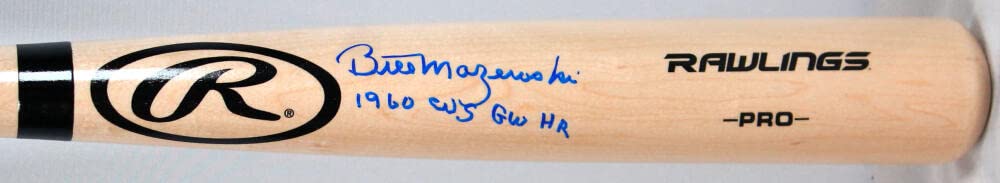 R®
Bill Mazeroski
1960 WS GW HR
RAWLINGS
-PRO-